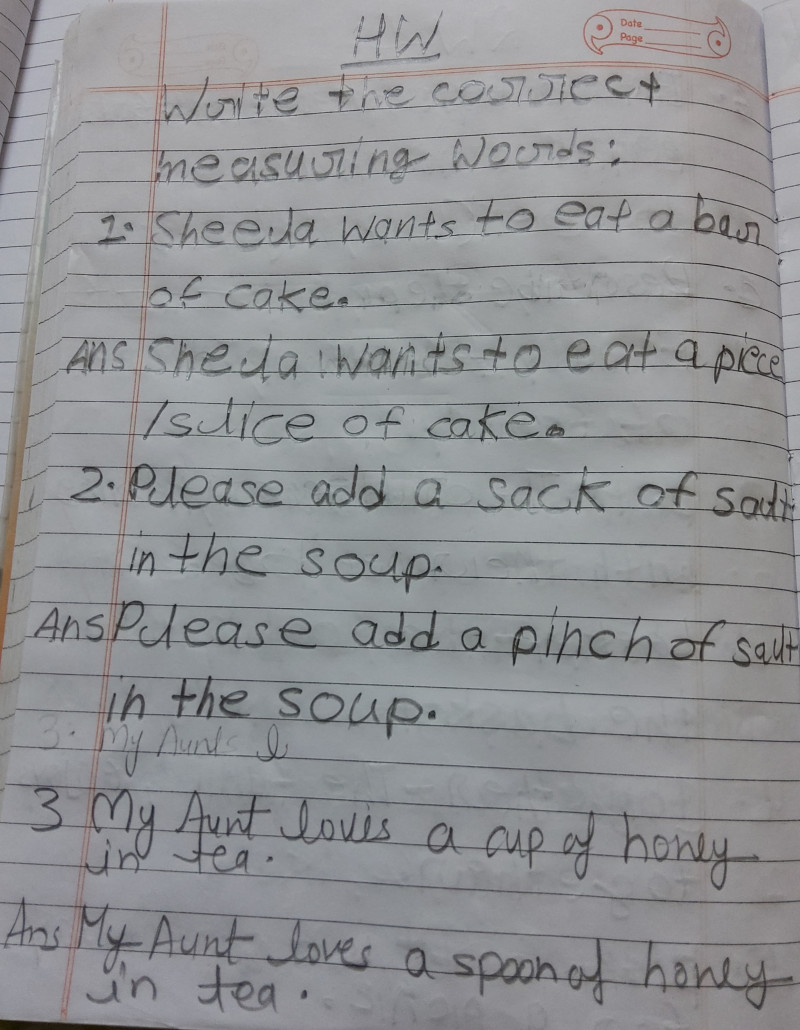 HW
Date
Page
Write the correct
measuring words:
1. Sheela wants to eat a bar
of cake.
Ans Shela wants to eat a piece
/slice of cake.
2. Please add a sack of salt
in the soup.
Ans Please add a pinch of salt
in the soup.
3. My Aunt l
3 My Aunt loves a cup of honey
in tea.
Ans My Aunt loves a spoon of honey
in tea.